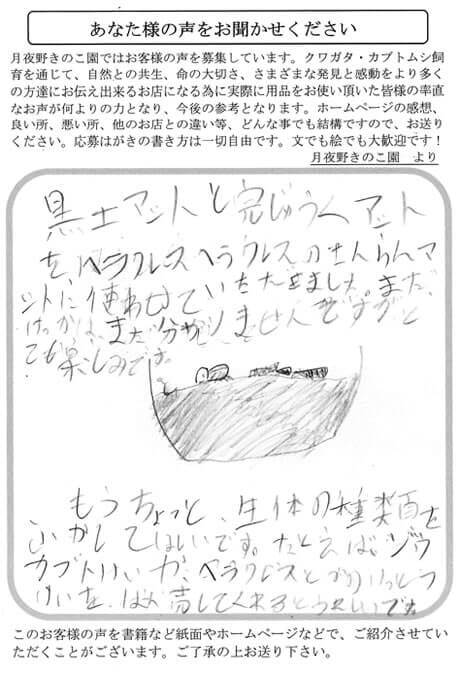 あなた様の声をお聞かせください
月夜野きのこ園ではお客様の声を募集しています。クワガタ・カブトムシ飼
育を通じて、自然との共生、命の大切さ、さまざまな発見と感動をより多く
の方達にお伝え出来るお店になる為に実際に用品をお使い頂いた皆様の率直
なお声が何よりの力となり、今後の参考となります。ホームページの感想、
良い所、悪い所、他のお店との違い等、どんな事でも結構ですので、お送り
ください。応募はがきの書き方は一切自由です。文でも絵でも大歓迎です！
月夜野きのこ園　より
黒土マットと完じゅくマット
を、ヘラクレスヘラクレスのさんらんマ
ットに使わせていただきました。まだ、
けっかは、まだ分かりませんですがと
ても楽しみです。
もうちょっと、生体の種類を
ふやしてほしいです。たとえば、ゾウ
カブトるいか、ヘラクレスと
るいを、はん売してくれるとうれしいです
このお客様の声を書籍など紙面やホームページなどで、ご紹介させてい
ただくことがございます。ご了承の上お送り下さい。